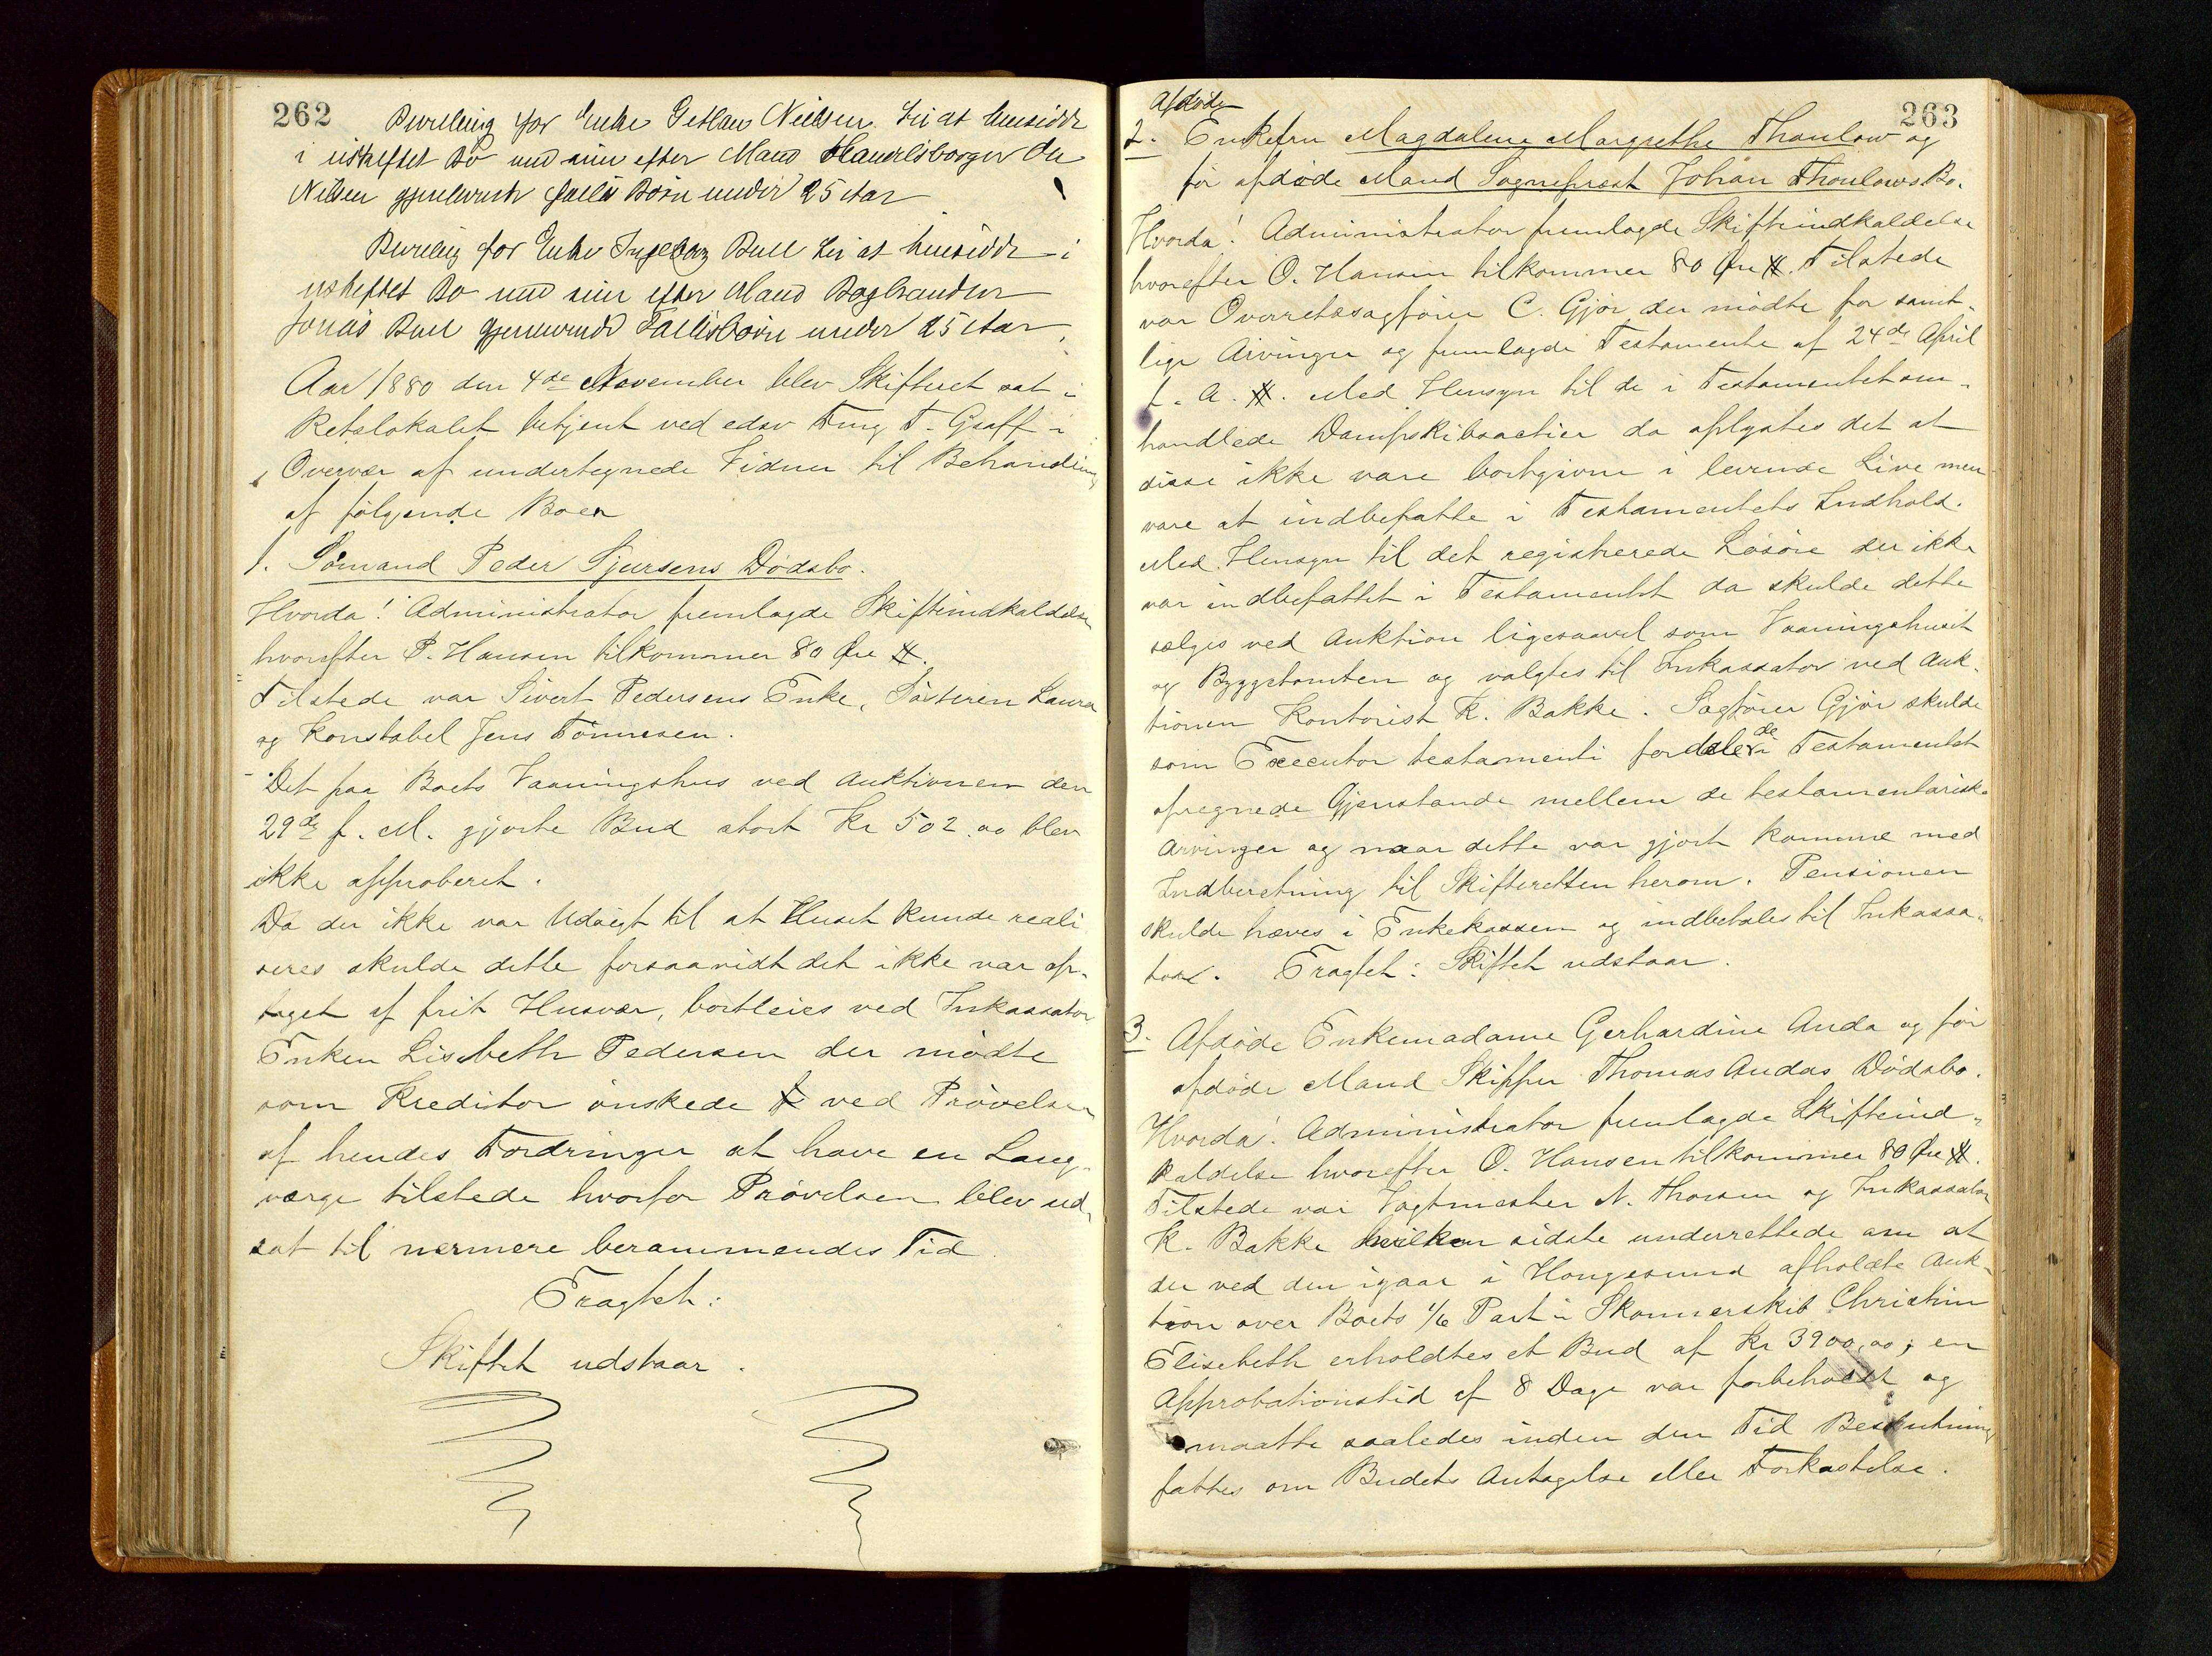 262
Bevilling for Enke Nielsen til at hensidde
i uskiftet Bo med sin efter Mand Handelsborger Ole
Nielsen gjenlevende fælles Børn under 25 Aar
Bevilling for Enke Ingeborg Bull til at hensidde i
uskiftet Bo med sin efter Mand Boghandler
Jonas Bull gjenlevende Fællesbørn under 25 Aar.
Aar 1880 den 4de November blev Skifteret sat i
Retslokalet betjent ved edsv Fmg T. Graff i
Overvær af undertegnede Vidner til Behandling
af følgende Boer
1. Sømand Peder Sjursens Dødsbo.
Hvorda! Administrator fremlagde Skifteindkaldelse
hvorefter P. Hansen tilkommer 80 Øre #.
Tilstede var Sivert Pedersens Enke, Søsteren Laura
og Konstabel Jens Tønnesen.
Det paa Boets Vaaningshus ved Auktionen den
29de f. M. gjorte Bud stort Kr 502.00 blev
ikke approberet.
Da der ikke var Udsigt til at Huset kunde reali
seres skulde dette forsaavidt det ikke var op-
taget af frit Husvær, bortleies ved Inkassator
Enken Lisebeth Pedersen der mødte
som Kreditor ønskede ved Prøvelsen
af hendes Fordringer at have en Laug-
værge tilstede hvorfor Prøvelsen blev ud-
sat til nærmere berammendes Tid.
Eragtet:
Skiftet udstaar.
263
Afdøde
2. Enkefru Magdalene Margrethe Thaulow og
før afdøde Mand Sogneprest Johan Thaulows Bo.
Hvorda! Administrator fremlagde Skifteindkaldelse
hvorefter O. Hansen tilkommer 80 Øre #. Tilstede
var Overretssagfører C. Gjør der mødte for samt-
lige Arvinger og fremlagde Testamente af 24de April
f. A. #. Med Hensyn til de i Testamentet om-
handlede Dampskibsactier da oplystes det at
disse ikke vare bortgivne i levende Live men
vare at indbefatte i Testamentets Indhold.
Med Hensyn til det registrerede Løsøre der ikke
var indbefattet i Testamentet da skulde dette
sælges ved Auktion ligesaavel som Vaaningshuset
og Byggetomten og valgtes til Inkassator ved Auk-
tionen Kontorist K. Bakke. Sagfører Gjør skulde
som Executor testamenti fordele de i Testamentet
opregnede Gjenstande mellem de testamentariske
Arvinger og naar dette var gjort komme med
Indberetning til Skifteretten herom. Pensionen
skulde hæves i Enkekassen og indbetales til Inkassa-
tor. Eragtet: Skiftet udstaar.
3. Afdøde Enkemadame Gerhardine Anda og før
afdøde Mand Skipper Thomas Andas Dødsbo.
Hvorda! Administrator fremlagde Skifteind-
kaldelse hvorefter O. Hansen tilkommer 80 Øre #.
Tilstede var Vagtmester N. Thorsen og Inkassator
K. Bakke hvilken sidste underrettede om at
der ved den igaar i Haugesund afholdte Auk-
tion over Boets 1/6 Part i Skonnerskib Christine
Elisebeth erholdtes et Bud af Kr 3900,00; en
Approbationstid af 8 Dage var forbeholdt og
maatte saaledes inden den Tid Beslutning
fattes om Budets Antagelse eller Forkastelse.